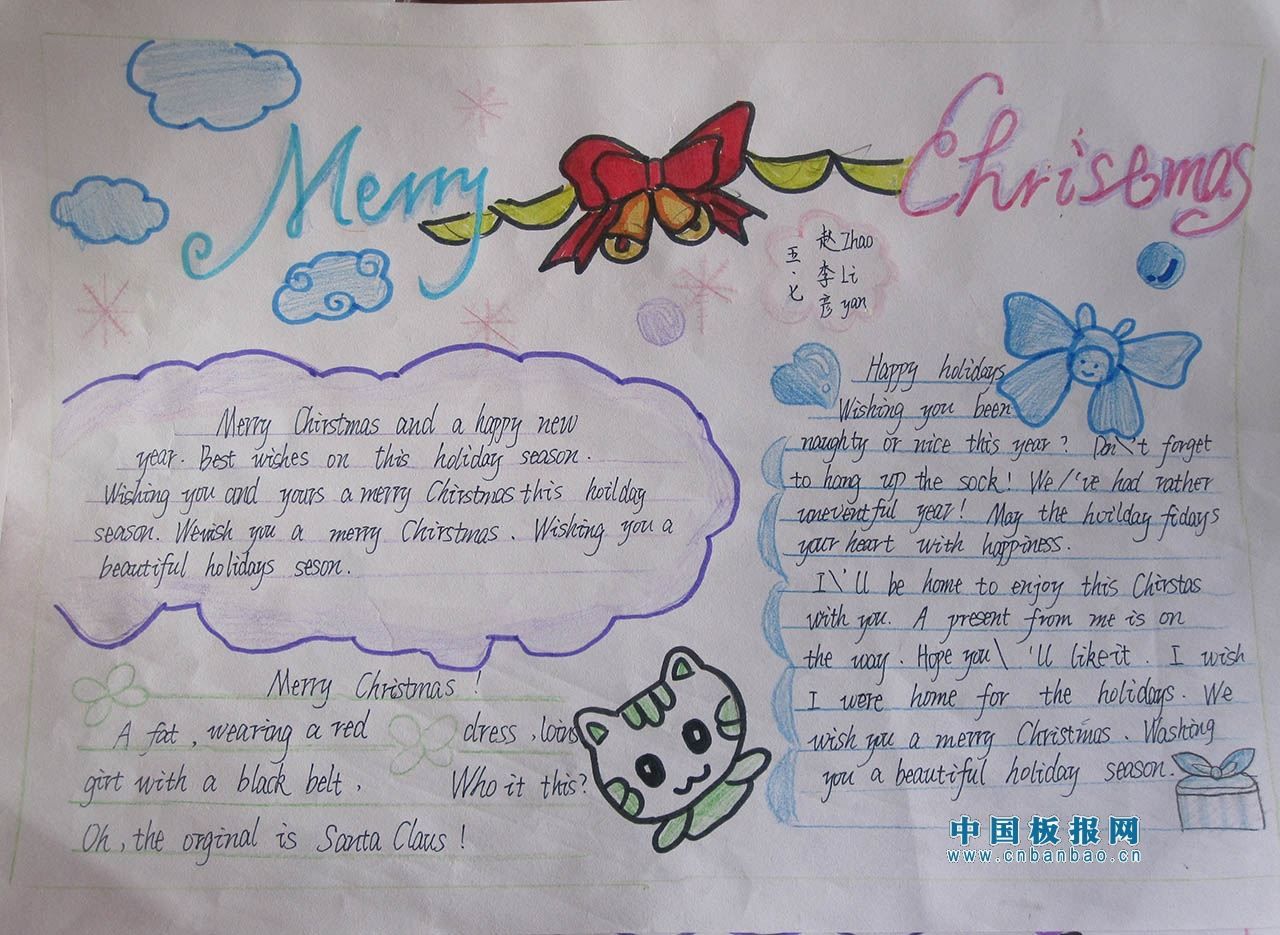 Merry Christmas
五.七
赵 Zhao
李 Li
彦 yan
Merry Chirstmas and a happy new
year. Best wishes on this holiday season.
Wishing you and yours a merry Chirstmas this hoilday
season. Wewish you a merry Chirstmas. Wishing you a
beautiful holidays seson.
Merry Christmas!
A fat, wearing a red dress, loins
girt with a black belt, Who it this?
Oh, the orginal is Santa Claus!
Happy holidays
Wishing you been
naughty or nice this year? Don\'t forget
to hang up the sock! We/'ve had rather
uneventful year! May the hoilday fidays
your heart with happiness.
I\'ll be home to enjoy this Chirstas
with you. A present from me is on
the way. Hope you\'ll like it. I wish
I were home for the holidays. We
wish you a merry Christmas. Washing
you a beautiful holiday season.
中国板报网
www.cnbanbao.cn